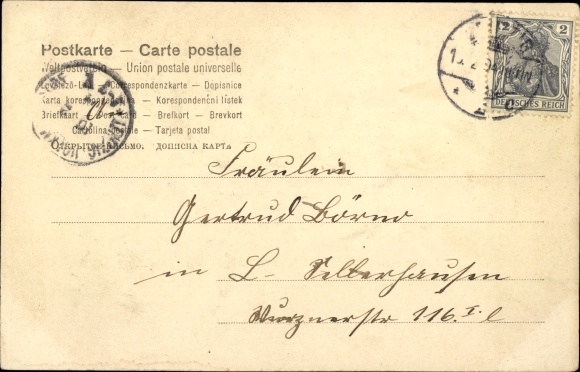 Postkarte — Carte postale
Weltpostverein — Union postale universelle
Levelező-Lap — Correspondenzkarte — Dopisnice
Karta korespondencyjna — Korespondenční lístek
Briefkaart — Post card — Brefkort — Brevkort
Cartolina postale — Tarjeta postal
ОТКРЫТОЕ ПИСЬМО. ДОПИСНА КАРТА
2 2
DEUTSCHES REICH
LEIPZIG
Fräulein
Gertrud Börno
in L- Sellerhausen
Wurznerstr 116.I. l